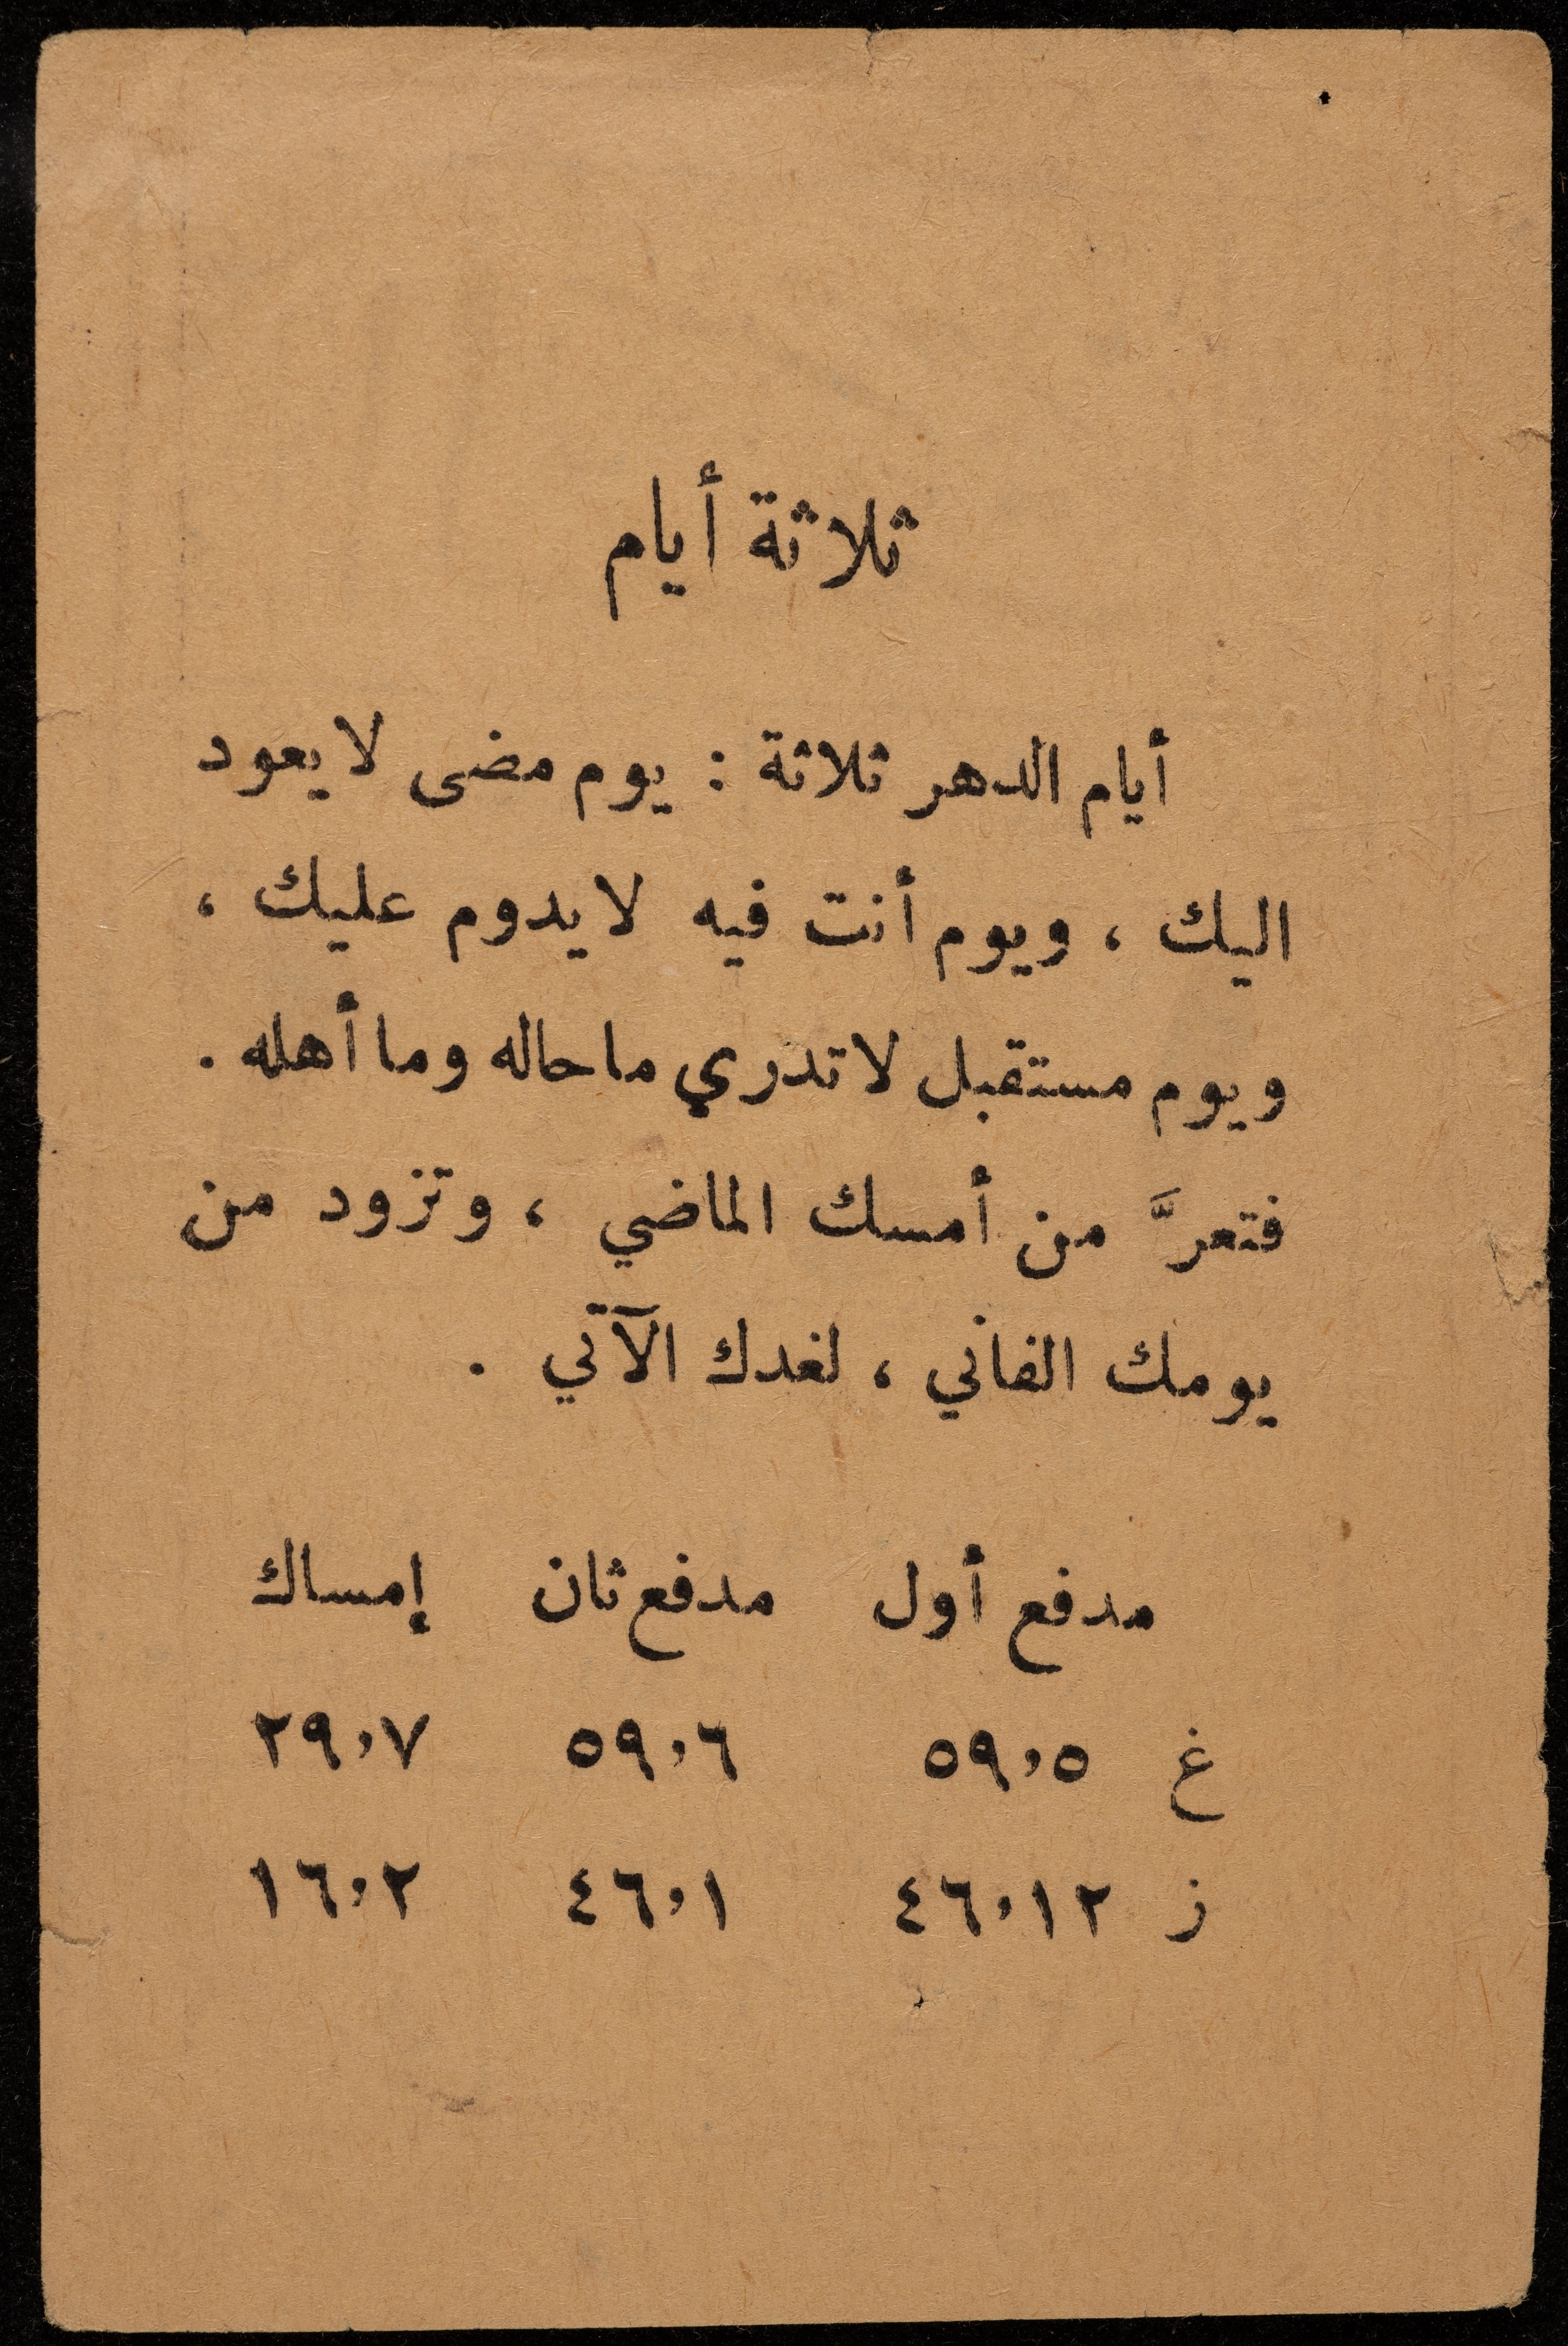 ثلاثة أيام
أيام الدهر ثلاثة : يوم مضى لا يعود
اليك ، ويوم أنت فيه لا يدوم عليك ،
ويوم مستقبل لا تدري ما حاله وما أهله .
فتعرَّ من أمسك الماضي ، وتزود من
يومك الفاني ، لغدك الآتي .
مدفع أول مدفع ثان إمساك
غ ٥،٥٩ ٦،٥٩ ٧،٢٩
ز ١٢،٤٦ ١،٤٦ ٢،١٦